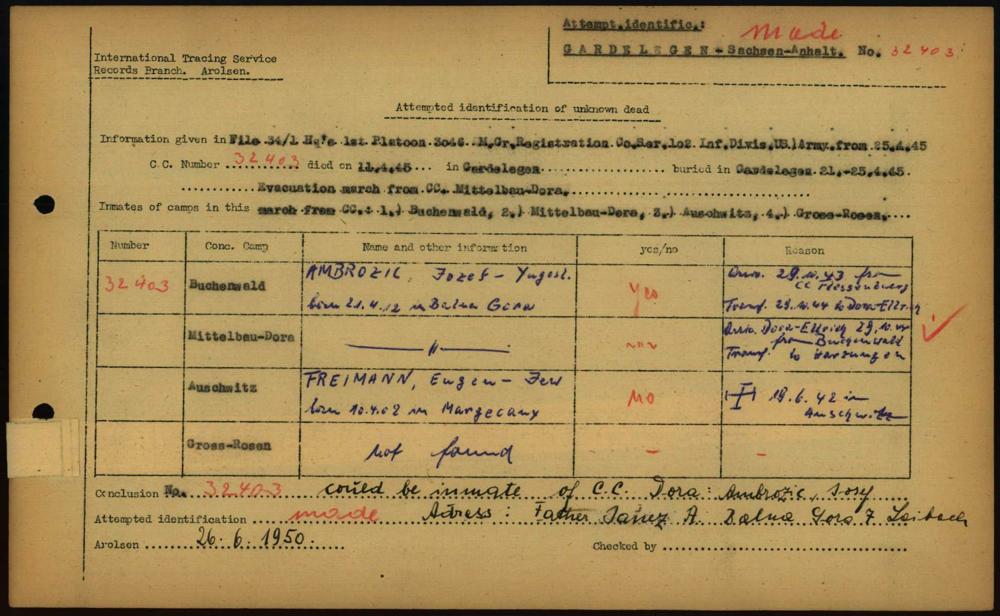 Attempt.identific.: made
GARDELEGEN - Sachsen-Anhalt. No. 32403
International Tracing Service
Records Branch. Arolsen.
Attempted identification of unknown dead
Information given in File 34/1 Hq's 1st Platoon 3046. M.Gr.Registration Co.Ser.102 Inf.Divis.US.)Army.from 25.4.45
C.C. Number 32403 died on 11.4.45 in Gardelegen buried in Gardelegen 21.-25.4.65
Evacuation march from CC. Mittelbau-Dora.
Inmates of camps in this march from CC.: 1.) Buchenwald, 2.) Mittelbau-Dora, 3.) Auschwitz, 4.) Gross-Rosen.
Number Conc. Camp Name and other information yes/no Reason
32403 Buchenwald AMBROZIC, Jozef - Yugosl. yes 29.10.43 from
CC Flossenbürg
born 21.4.12 in Balna Gora Transf. 29.10.44 to Dora-Ellrich
Mittelbau-Dora —— " —— Dora-Ellrich 29.10.44
from Buchenwald
Transf. to Harzungen
Auschwitz FREIMANN, Eugen - Jew no 19.6.42 in
Auschwitz
born 10.4.02 in Margecany
Gross-Rosen not found - -
Conclusion No. 32403 could be inmate of C.C. Dora: Ambrozic, Josef
Attempted identification made Adress: Father Janez A. Dalna Gora 7 Laibach
Arolsen 26.6.1950. Checked by